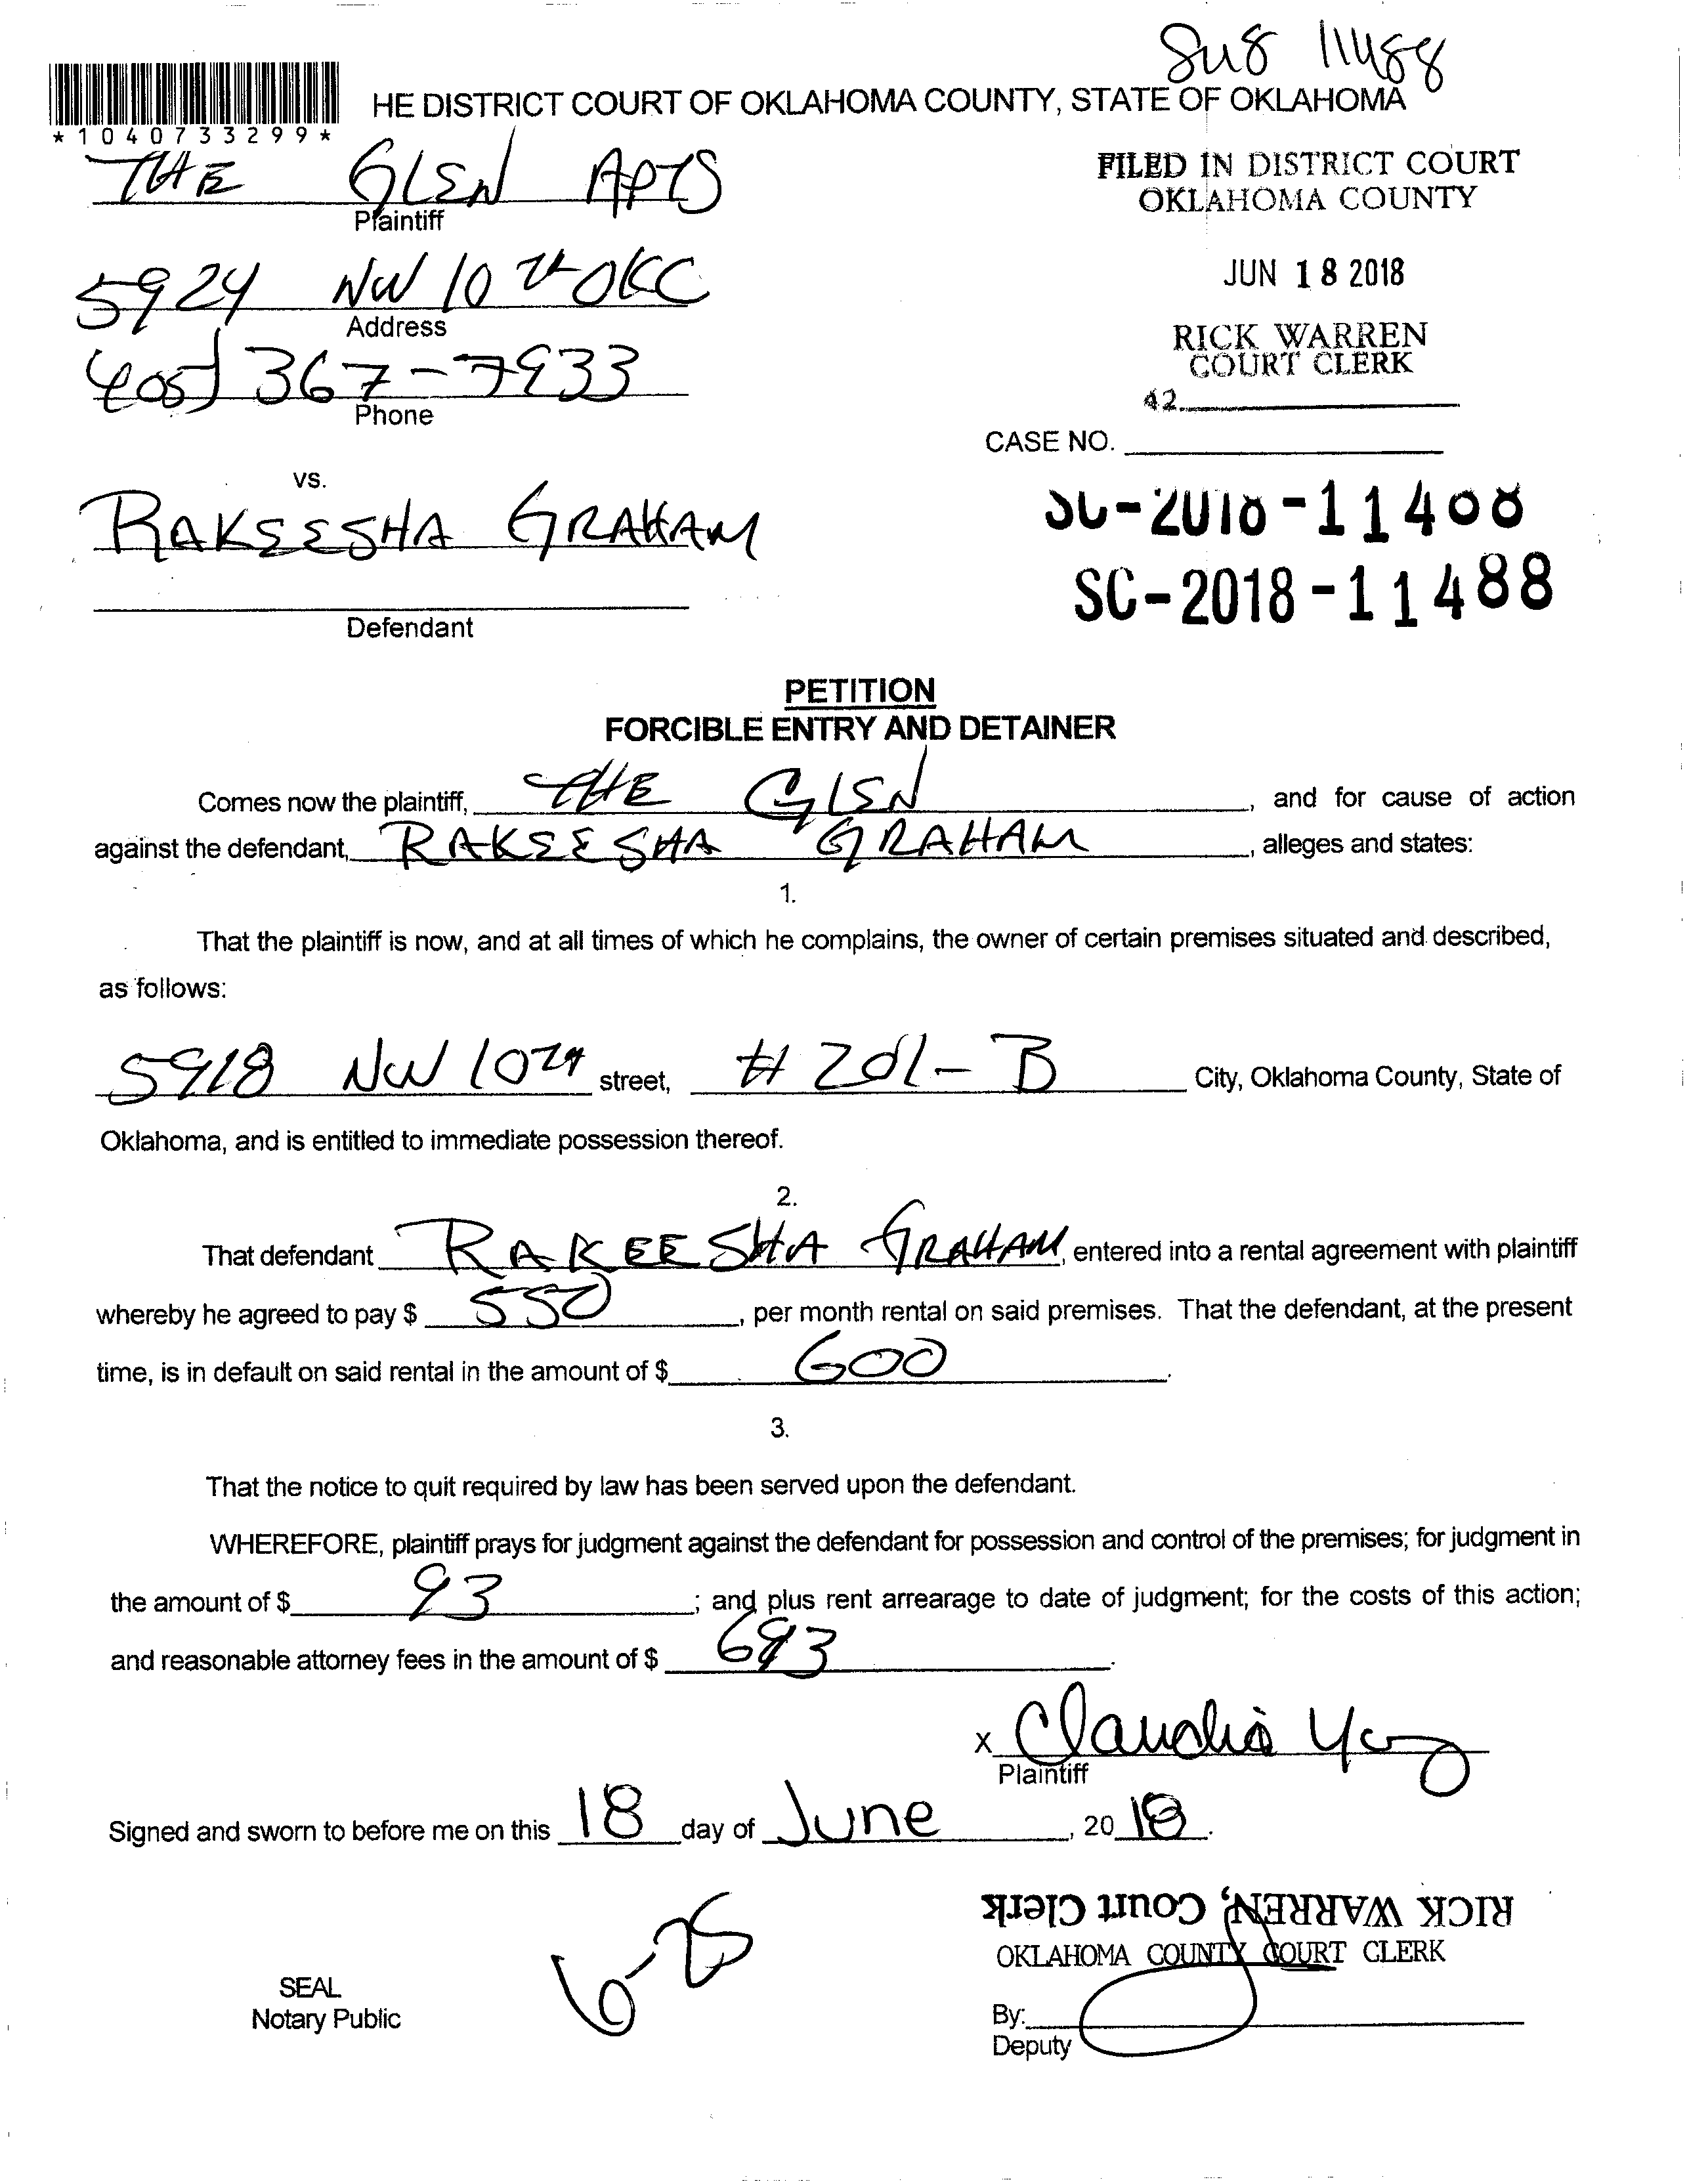 11488
*1040733299*
HE DISTRICT COURT OF OKLAHOMA COUNTY, STATE OF OKLAHOMA
THE GLEN APTS
Plaintiff
FILED IN DISTRICT COURT
OKLAHOMA COUNTY
5924 NW 10th OKC
Address
JUN 18 2018
405) 367-7933
Phone
RICK WARREN
COURT CLERK
42
CASE NO.
vs.
RAKEESHA GRAHAM
Defendant
SC-2018-11488
SC-2018-11488
PETITION
FORCIBLE ENTRY AND DETAINER
Comes now the plaintiff, THE GLEN, and for cause of action
against the defendant, RAKEESHA GRAHAM, alleges and states:
1.
That the plaintiff is now, and at all times of which he complains, the owner of certain premises situated and described,
as follows:
5918 NW 10TH street, # 201-B City, Oklahoma County, State of
Oklahoma, and is entitled to immediate possession thereof.
2.
That defendant RAKEESHA GRAHAM, entered into a rental agreement with plaintiff
whereby he agreed to pay $ 550, per month rental on said premises. That the defendant, at the present
time, is in default on said rental in the amount of $ 600.
3.
That the notice to quit required by law has been served upon the defendant.
WHEREFORE, plaintiff prays for judgment against the defendant for possession and control of the premises; for judgment in
the amount of $ 93; and plus rent arrearage to date of judgment; for the costs of this action;
and reasonable attorney fees in the amount of $ 693.
x Claudia
Plaintiff
Signed and sworn to before me on this 18 day of June, 2018.
RICK WARREN, Court Clerk
OKLAHOMA COUNTY COURT CLERK
6-25
SEAL
Notary Public
By:
Deputy